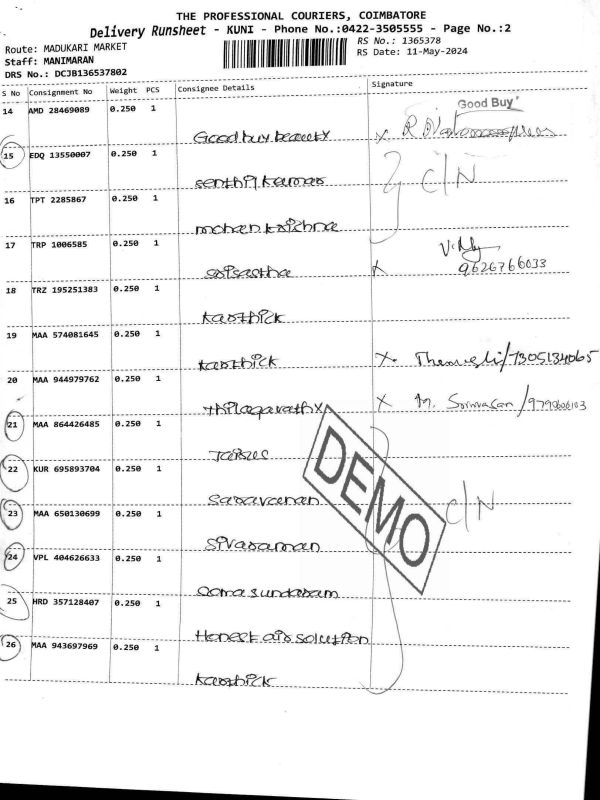 THE PROFESSIONAL COURIERS, COIMBATORE
Delivery Runsheet - KUNI - Phone No.:0422-3505555 - Page No.:2
Route: MADUKARI MARKET RS No.: 1365378
Staff: MANIMARAN RS Date: 11-May-2024
DRS No.: DCJB136537802
S No Consignment No Weight PCS Consignee Details Signature
14 AMD 28469089 0.250 1 Good Buy
Goodbuy beauty x
15 EDQ 13550007 0.250 1
Senthil kumar C/N
16 TPT 2285867 0.250 1
mohan krishna
17 TRP 1006585 0.250 1
saisastha x 9626766033
18 TRZ 195251383 0.250 1
karthick
19 MAA 574081645 0.250 1
karthick x /7305134065
20 MAA 944979762 0.250 1
Thilagavathy x M. Srinivasan /9790606103
21 MAA 864426485 0.250 1
22 KUR 695893704 0.250 1
Saravanan C/N
23 MAA 650130699 0.250 1
Sivaraman
24 VPL 404626633 0.250 1
Somasundaram
25 HRD 357128407 0.250 1
Honest air solution
26 MAA 943697969 0.250 1
karthick
DEMO